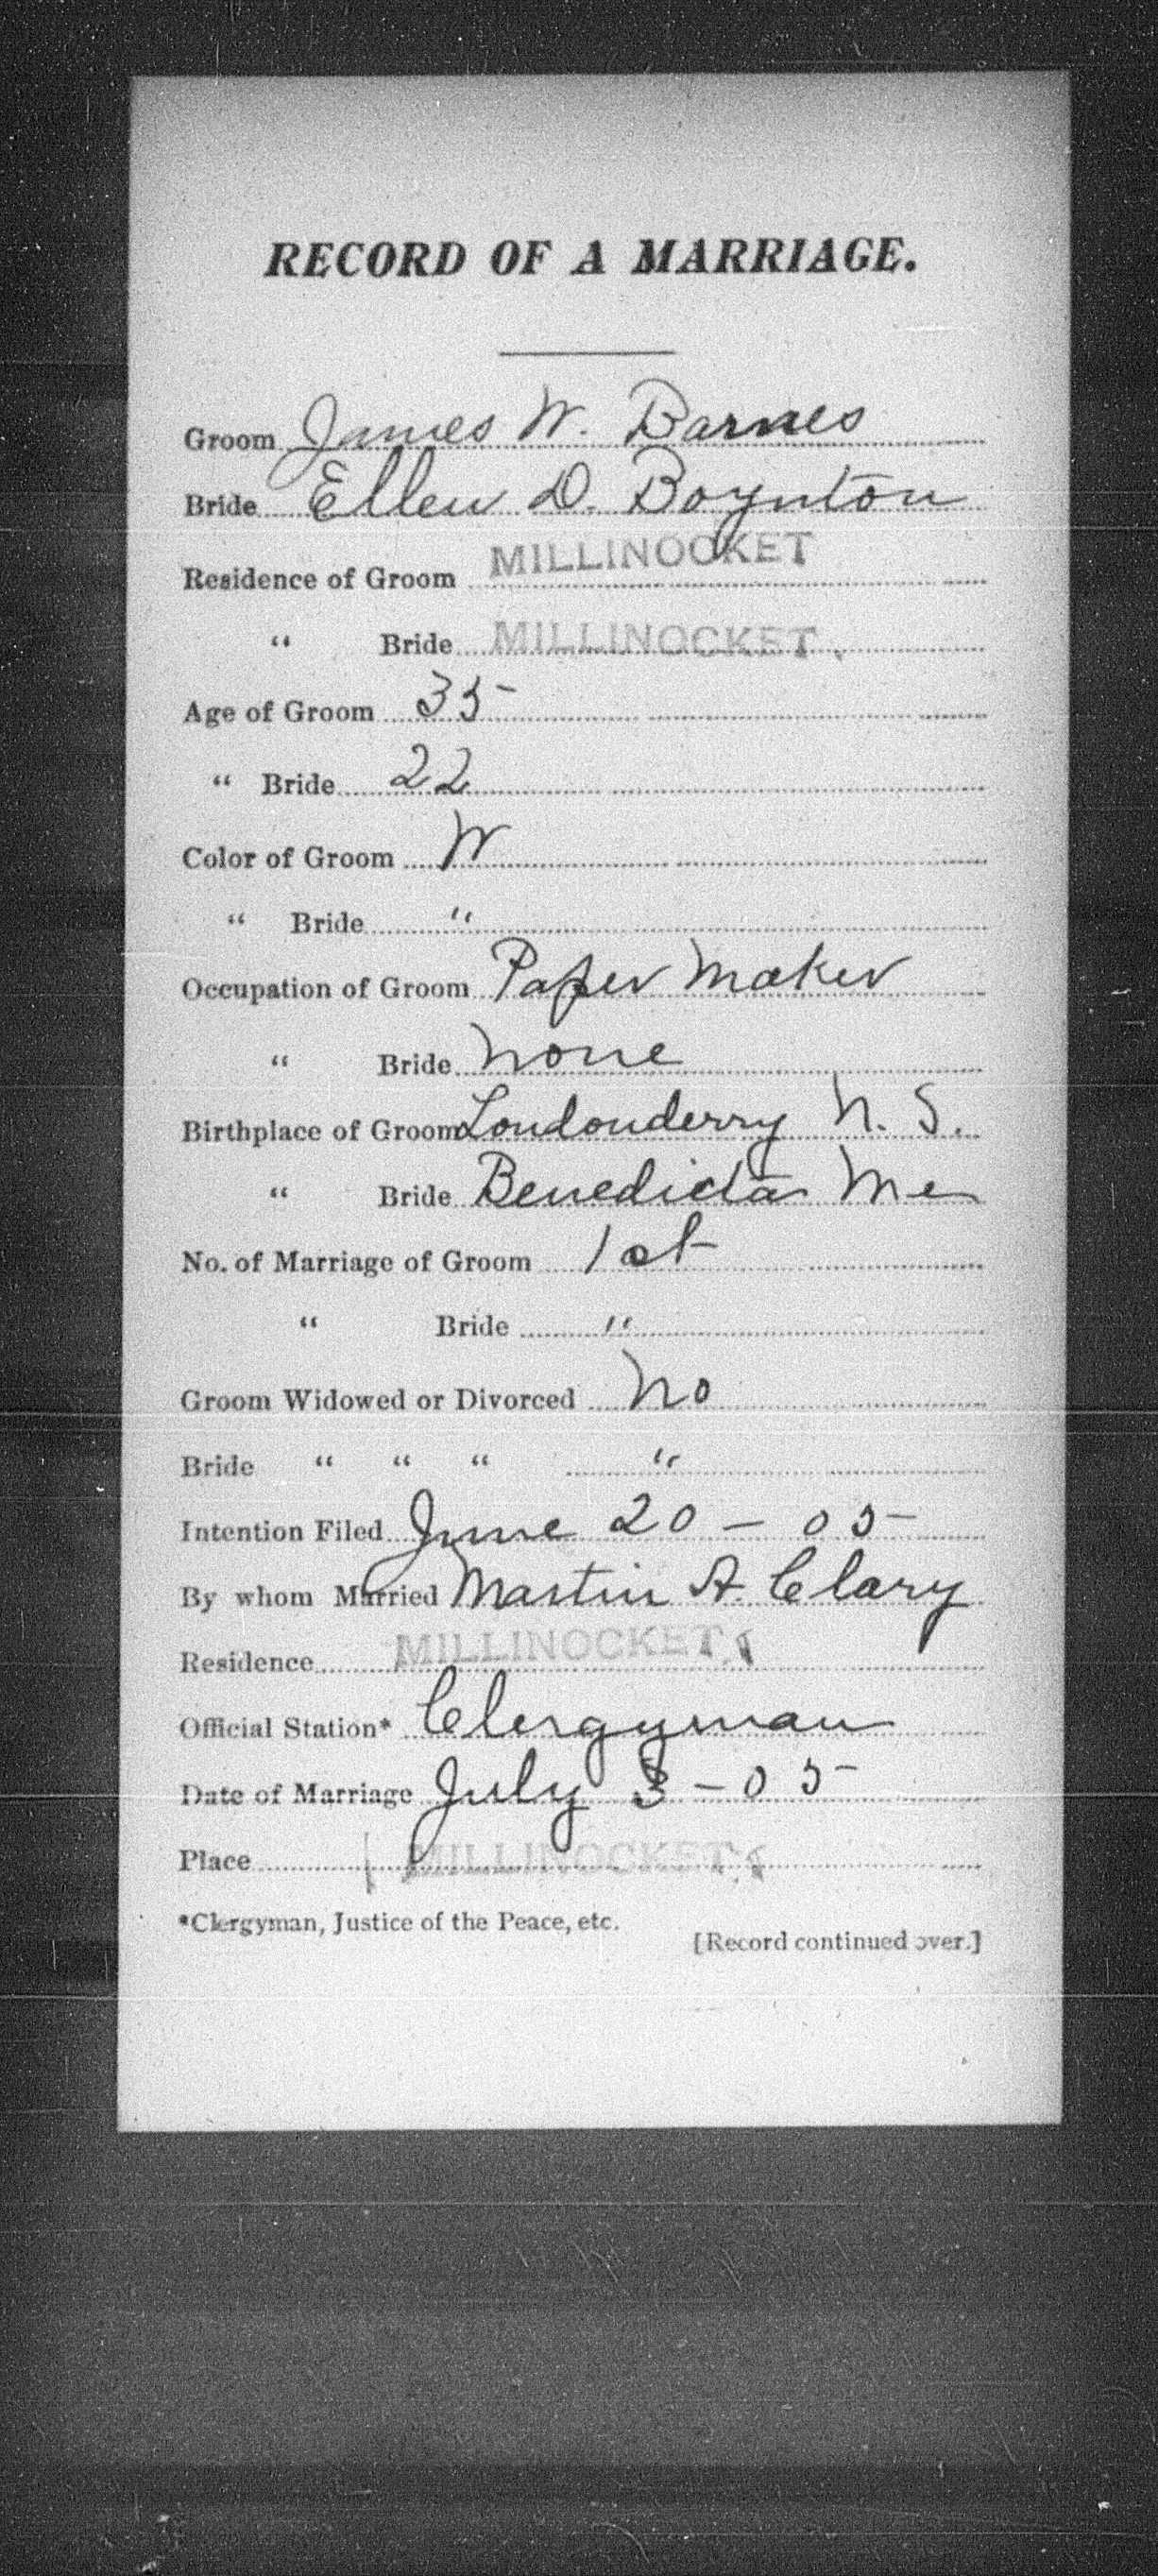 RECORD OF A MARRIAGE.
Groom James W. Barnes
Bride Ellen D. Boynton
Residence of Groom MILLINOCKET
" Bride MILLINOCKET.
Age of Groom 35
" Bride 22
Color of Groom W
" Bride "
Occupation of Groom Paper Maker
" Bride None
Birthplace of Groom Londonderry N. S.
" Bride Benedicta Me
No. of Marriage of Groom 1st
" Bride "
Groom Widowed or Divorced No
Bride " " " "
Intention Filed June 20 - 05
By whom Married Martin A. Clary
Residence MILLINOCKET.
Official Station* Clergyman
Date of Marriage July 3 - 05
Place MILLINOCKET.
*Clergyman, Justice of the Peace, etc.
[Record continued over.]